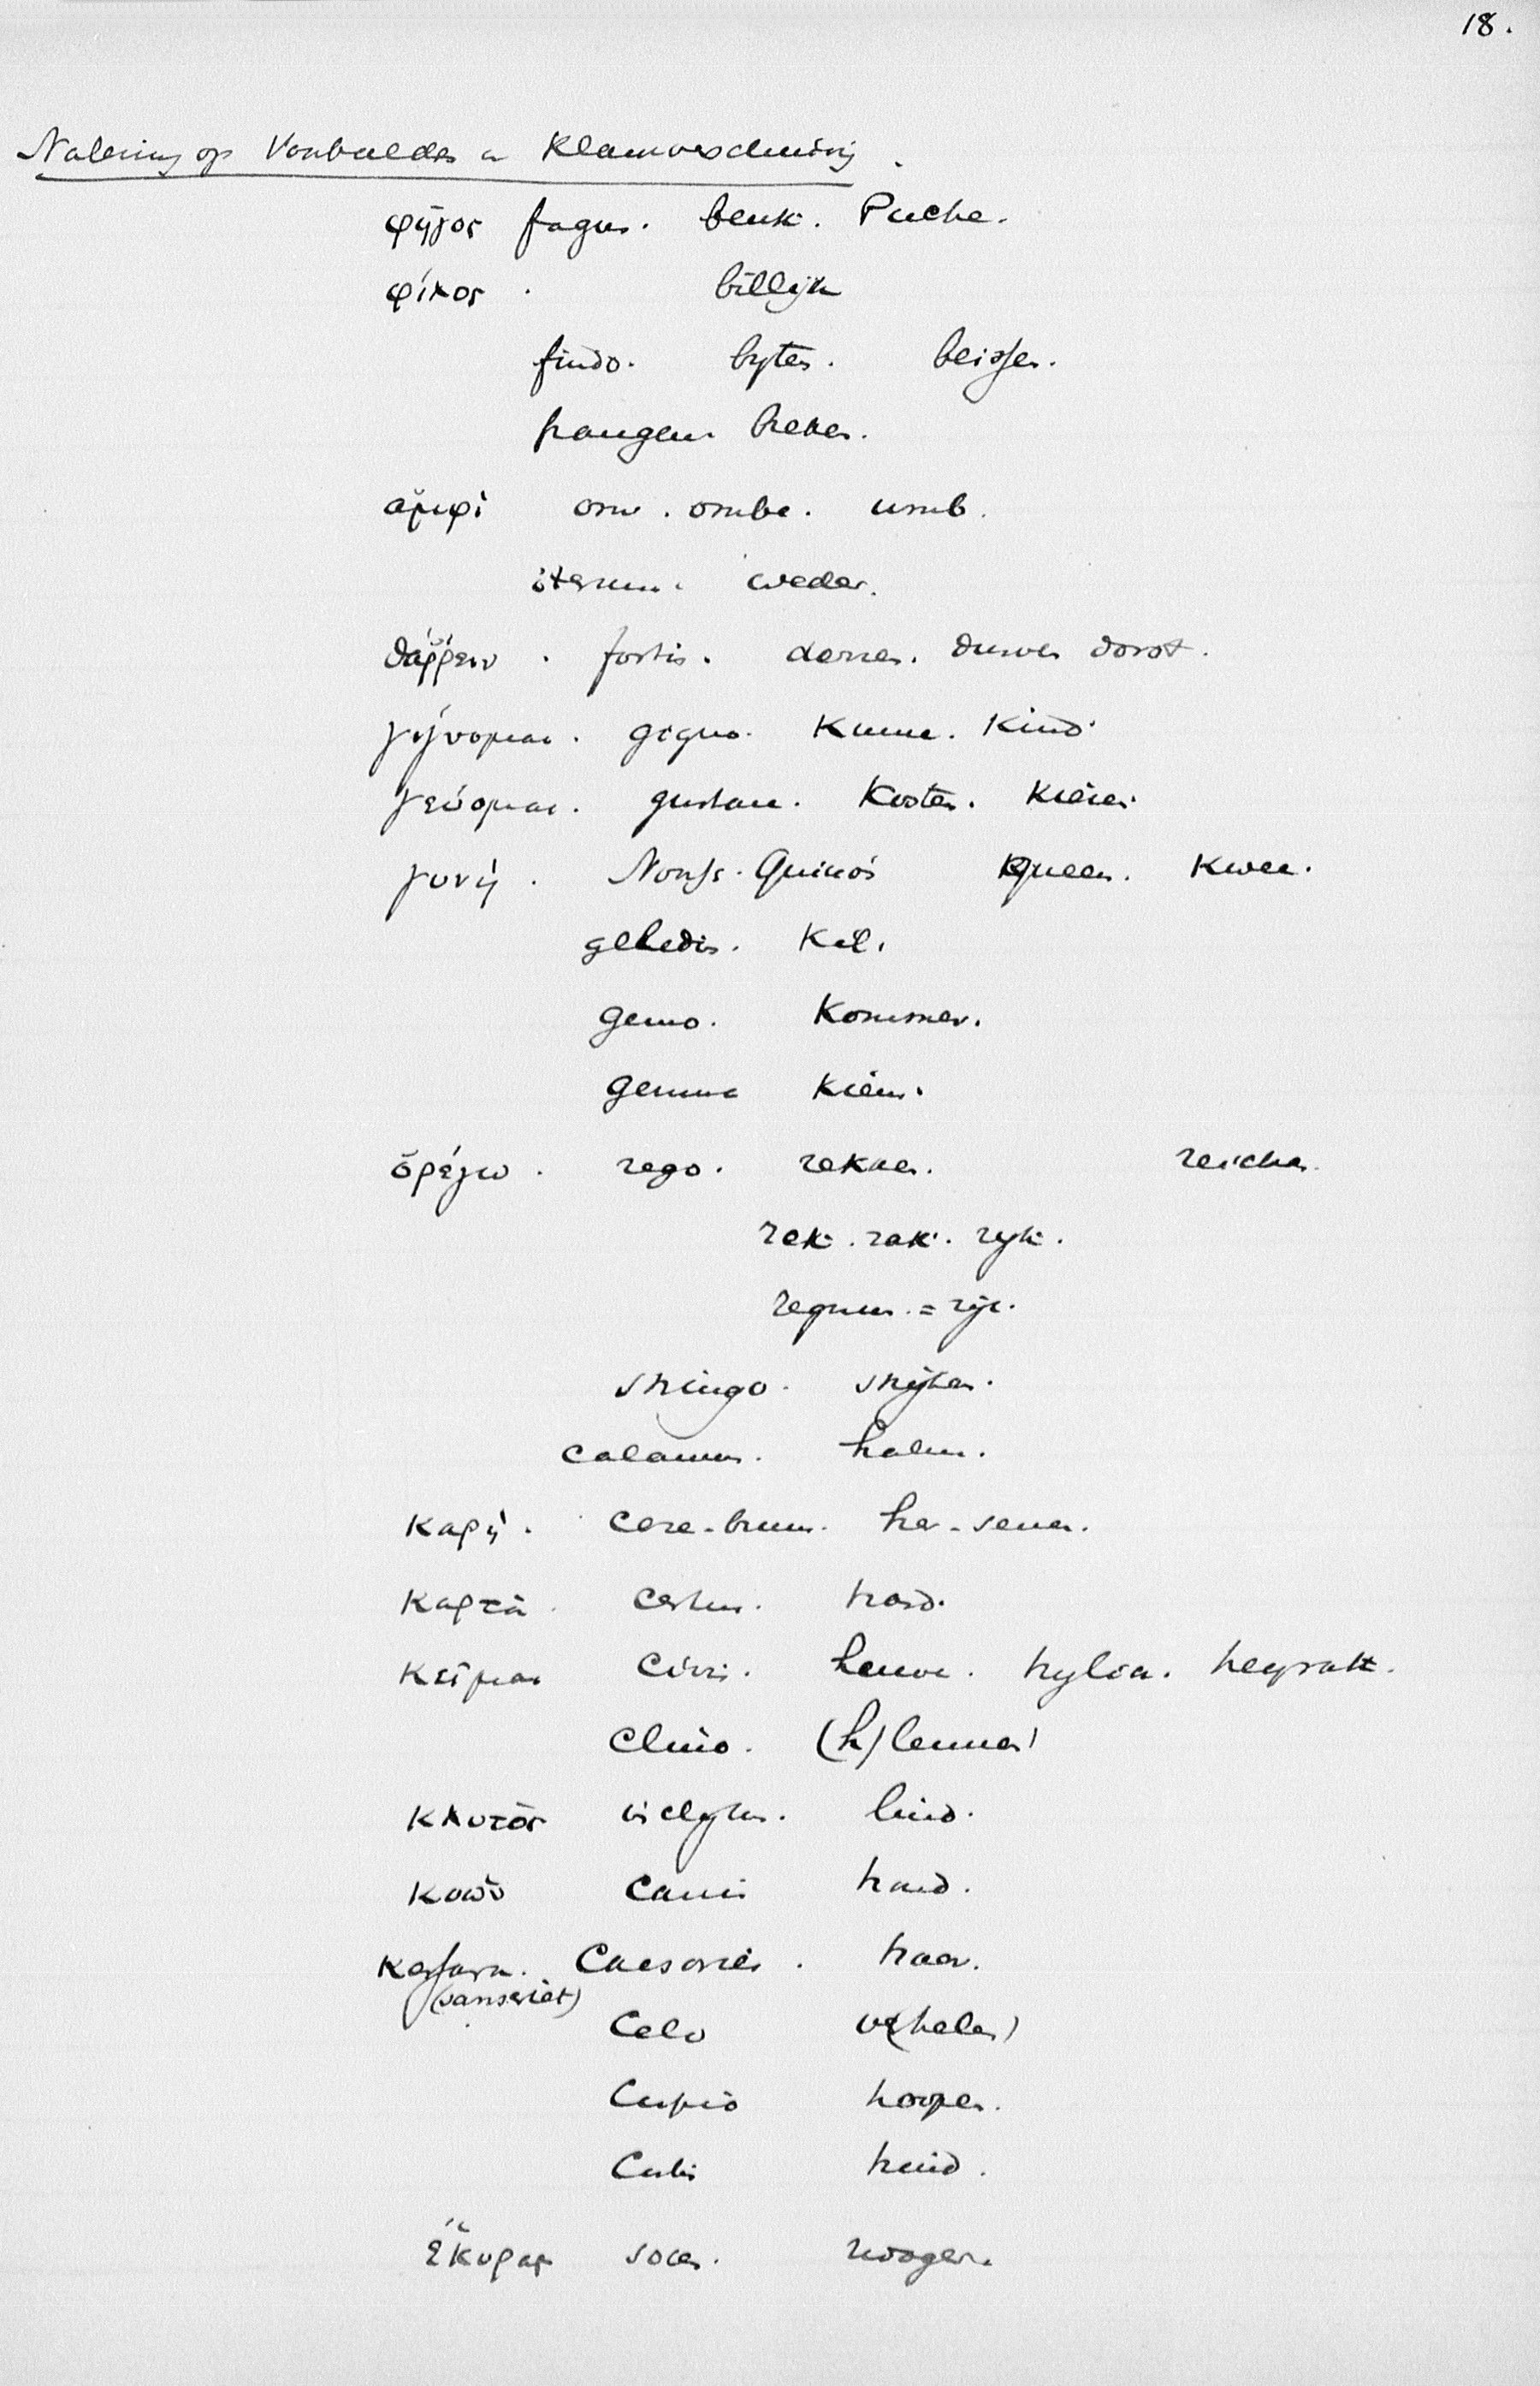 18.
Nalezing op Voorbeelden v Klankverschuiving.
φηγος fagus. beuk. Puche.
φίλος . billijk
findo. byten. beissen.
frangere. breken.
ἀμφὶ om. ombe. umb.
iterum. weder.
θαρρειν . fortis. dorren. durven dorst.
γίγνομαι. gigno. Kunne. Kind.
γεύομαι. gustare. Kosten. Kiezen.
γυνή. Noordsch. Quinos Queen. Kween.
gelidus. Kil.
gemo. Kommer.
gemma Kiem.
ὀρέγω. rego. rekken. reichen.
rek. rak. ryk.
regnum. = rijk.
stringo. strijken.
calamus. halm.
καρη. cere-brum. her-senen.
καρτα. certus. hard.
κειμαι civis. heuve. hylic. heyratt.
clino. (h)leunen
κλυτὸς inclytus. luid.
κυων canis hond.
Kesara. (sanscriet) Caesaries. haar.
Celo ver(helen)
Cupio hopen.
Cutis huid.
ἑκυρος socer. zwager.